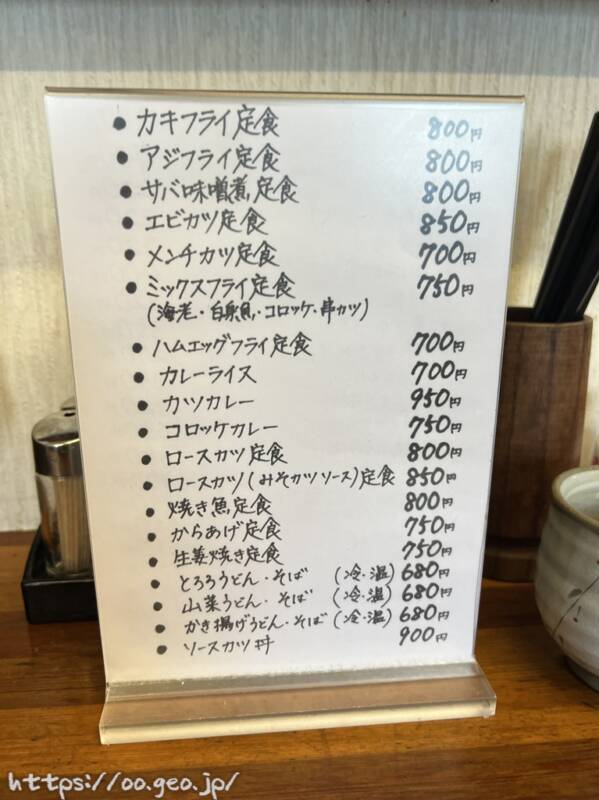 • カキフライ定食 800円
• アジフライ定食 800円
• サバ味噌煮定食 800円
• エビカツ定食 850円
• メンチカツ定食 700円
• ミックスフライ定食 750円
(海老・白身魚・コロッケ・串カツ)
• ハムエッグフライ定食 700円
• カレーライス 700円
• カツカレー 950円
• コロッケカレー 750円
• ロースカツ定食 800円
• ロースカツ(みそカツソース)定食 850円
• 焼き魚定食 800円
• からあげ定食 750円
• 生姜焼き定食 750円
• とろろうどん・そば (冷・温) 680円
• 山菜うどん・そば (冷・温) 680円
• かき揚げうどん・そば (冷・温) 680円
• ソースカツ丼 900円
https://oo.geo.jp/